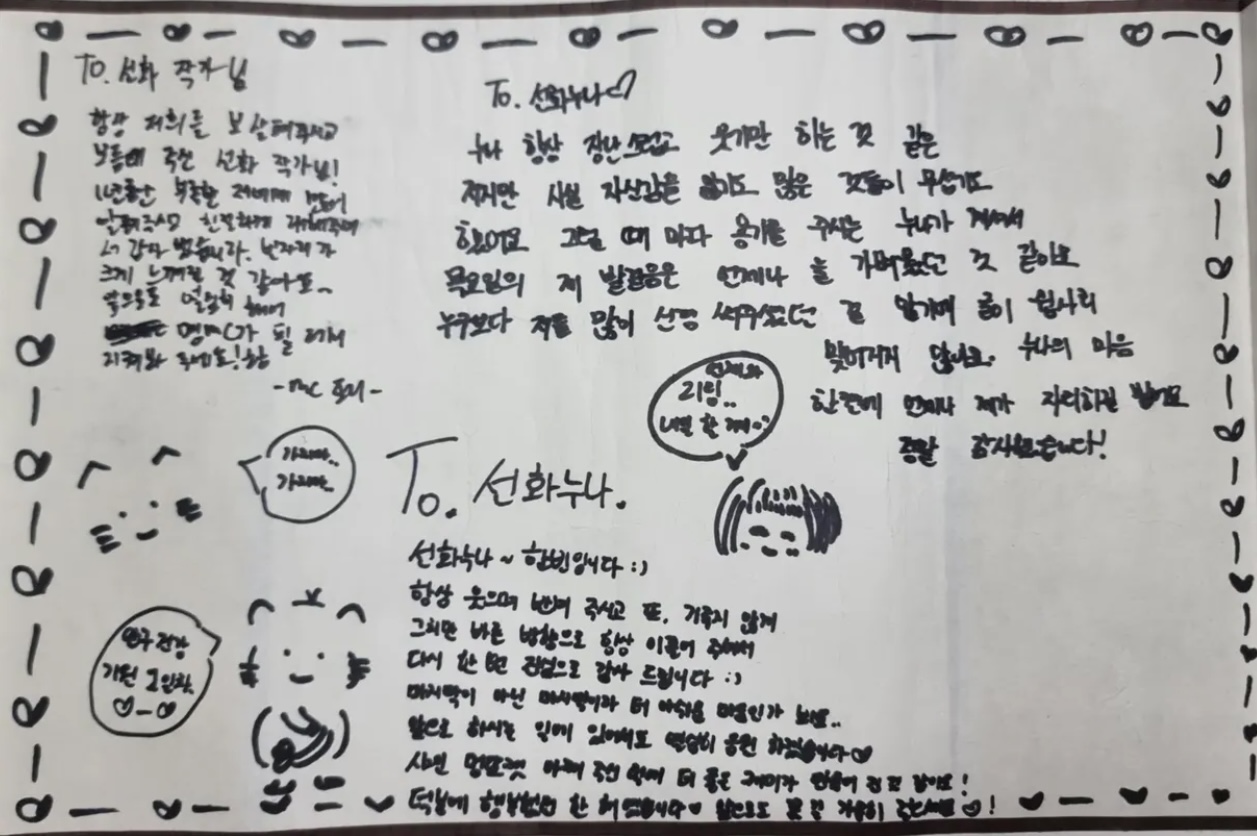 To. 선화 작가님
항상 저희를 보살펴주시고
보듬어 주신 선화 작가님!
1년동안 부족한 저에게 많이
알려주시고 친절하게 대해주셔
서 감사 했습니다. 빈자리가
크게 느껴질 것 같아요..
앞으로도 열심히 해서
명MC가 될 테니
지켜봐 주세요! 항상
-MC 프리-
To. 선화누나♡
누나 항상 장난스럽고 웃기만 하는 것 같은
저지만 사실 자신감을 잃기도 많은 것들이 무섭기도
했어요 그럴 때 마다 용기를 주시는 누나가 계셔서
목요일의 제 발걸음은 언제나 늘 가벼웠던 것 같아요
누구보다 저를 많이 신경 써주셨던 걸 알기에 굳이
맺어지지 않네요. 누나의 마음
한켠에 언제나 제가 자리하길 빌어요
정말 감사했습니다!
언제나
리밍..
너만 할게
가지마..
가지마..
To. 선화누나.
선화누나 ~ 한빈입니다 :)
항상 웃으며 반겨 주시고 또, 기죽지 않게
그치만 바른 방향으로 항상 이끌어 주셔서
다시 한 번 진심으로 감사 드립니다 :)
마지막이 아닌 마지막이라 더 아쉬운 마음인가 봐요..
앞으로 하시는 일에 있어서도 열심히 응원 하겠습니다♡
사인 아래 주신 덕에 더 좋은 케미가 있을 것 같아요!
덕분에 행복했던 한 해 였습니다♡ 앞으로도 잘 가끔히 ♡!
연구 건강
기원 1인화
♡_♡